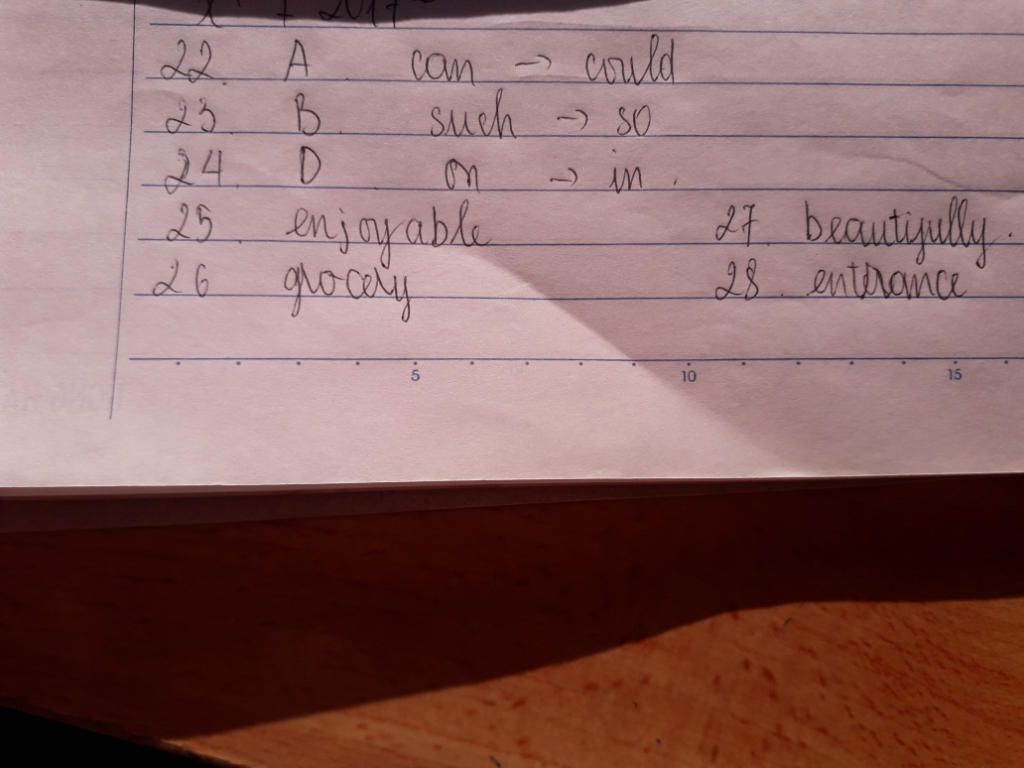 22. A. can → could
23. B. such → so
24. D on → in.
25. enjoyable 27. beautifully.
26 grocery 28. enterance
5 10 15